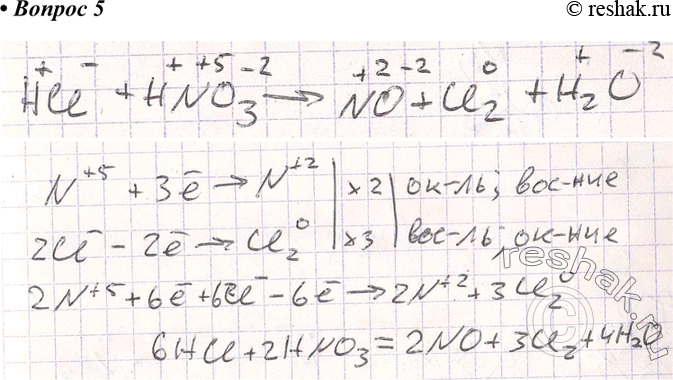 • Вопрос 5
© reshak.ru
H⁺Cl⁻ + H⁺N⁺⁵O₃⁻² → N⁺²O⁻² + Cl₂⁰ + H₂⁺O⁻²
N⁺⁵ + 3ē → N⁺² | ×2 | ок-ль; вос-ние
2Cl⁻ - 2ē → Cl₂⁰ | ×3 | вос-ль; ок-ние
2N⁺⁵ + 6ē + 6Cl⁻ - 6ē → 2N⁺² + 3Cl₂⁰
6HCl + 2HNO₃ = 2NO + 3Cl₂ + 4H₂O
reshak.ru